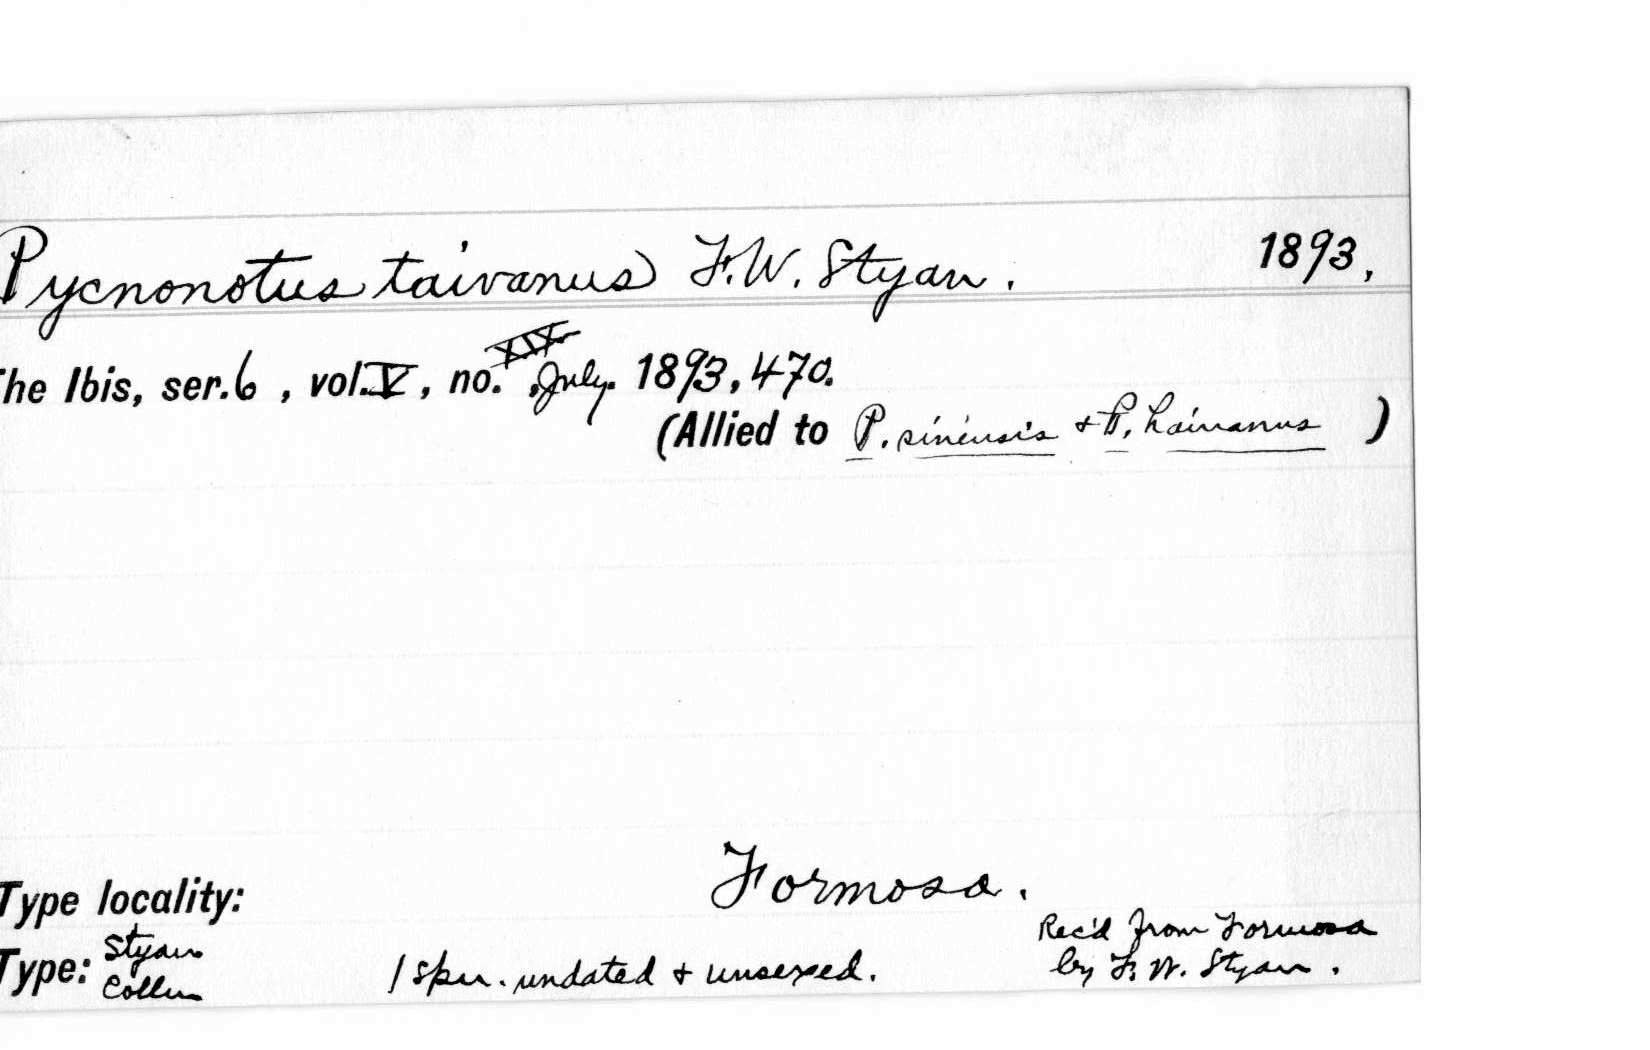 Pycnonotus taivanus F.W. Styan. 1893,
The Ibis, ser. 6, vol. V, no. XIX, July. 1893, 470.
(Allied to P. sinensis + P. hainanus)
Type locality: Formosa.
Type: Styan Colln 1 spn. undated + unsexed. Rec'd from Formosa
by F. W. Styan.